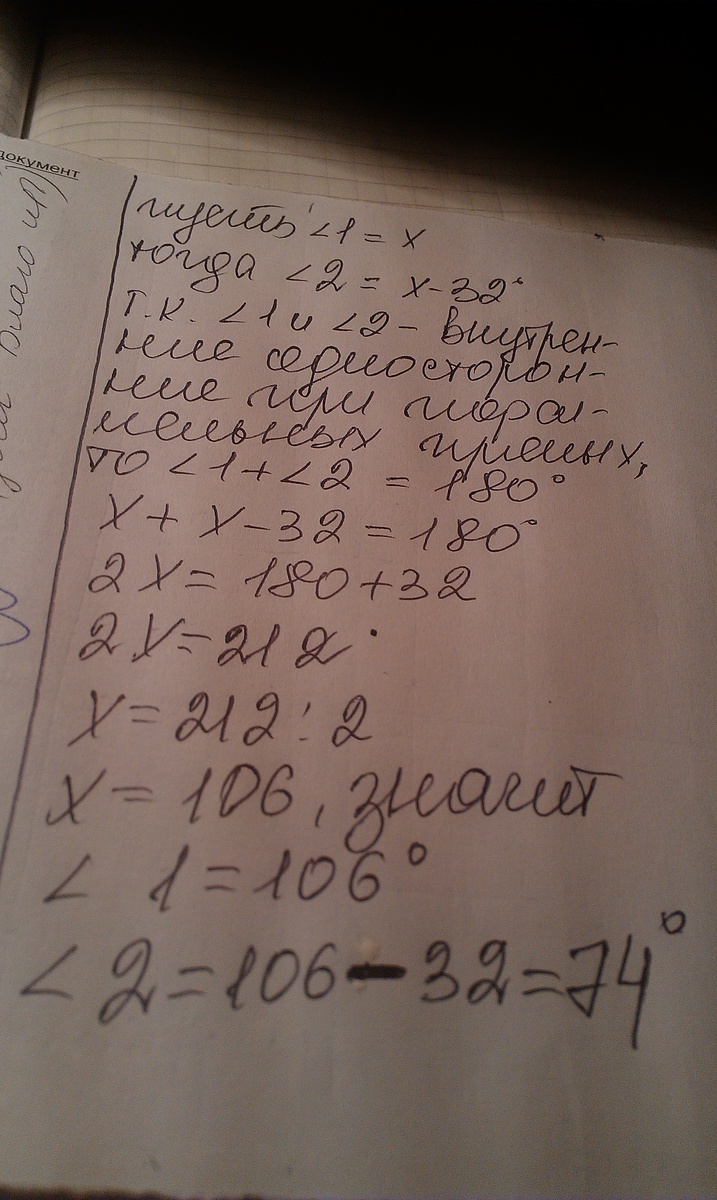 документ
пусть ∠1 = x
тогда ∠2 = x-32°
т.к. ∠1 и ∠2 - внутрен-
ние односторон-
ние при парал-
лельных прямых,
то ∠1+∠2 = 180°
x + x-32 = 180°
2x = 180+32
2x = 212
x = 212:2
x = 106, значит
∠ 1 = 106°
∠ 2 = 106-32=74°